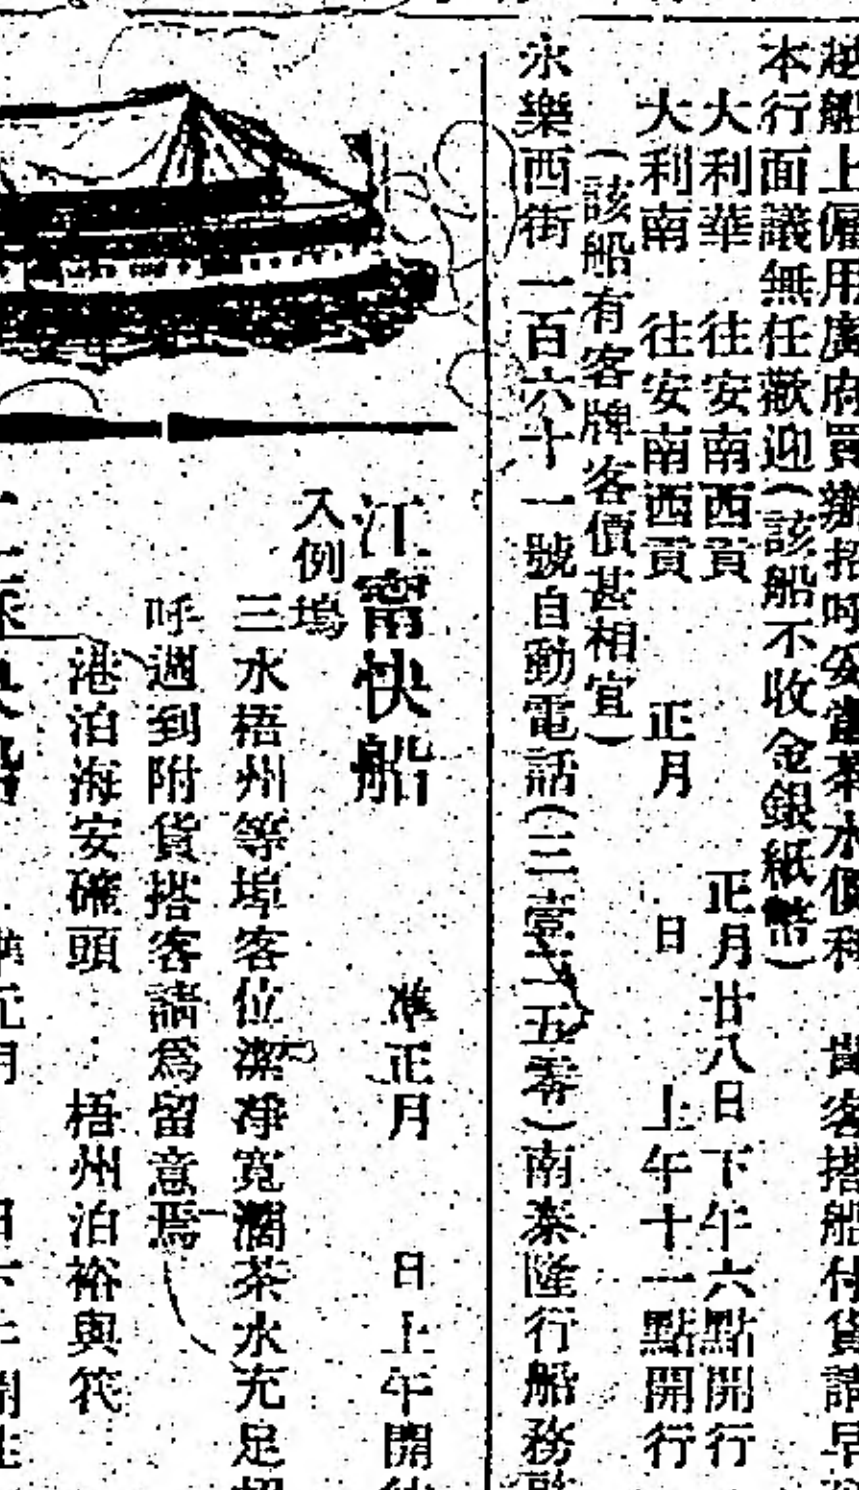 越船上僱用廣府買辦招呼妥當茶水價科 貴客搭船付貨請早
本行面議無任歡迎(該船不收金銀紙幣)
大利華 往安南西貢 正月廿八日下午六點開行
大利南 往安南西貢 正月 日 上午十一點開行
(該船有客牌客價甚相宜)
永樂西街一百六十一號自動電話(二壹二五零)南泰隆行船務
江甯快船 准正月 日上午開
入例塢
三水梧州等埠客位潔凈寬濶茶水充足招
呼週到附貨搭客請爲留意焉
港泊海安礶頭 梧州泊裕與